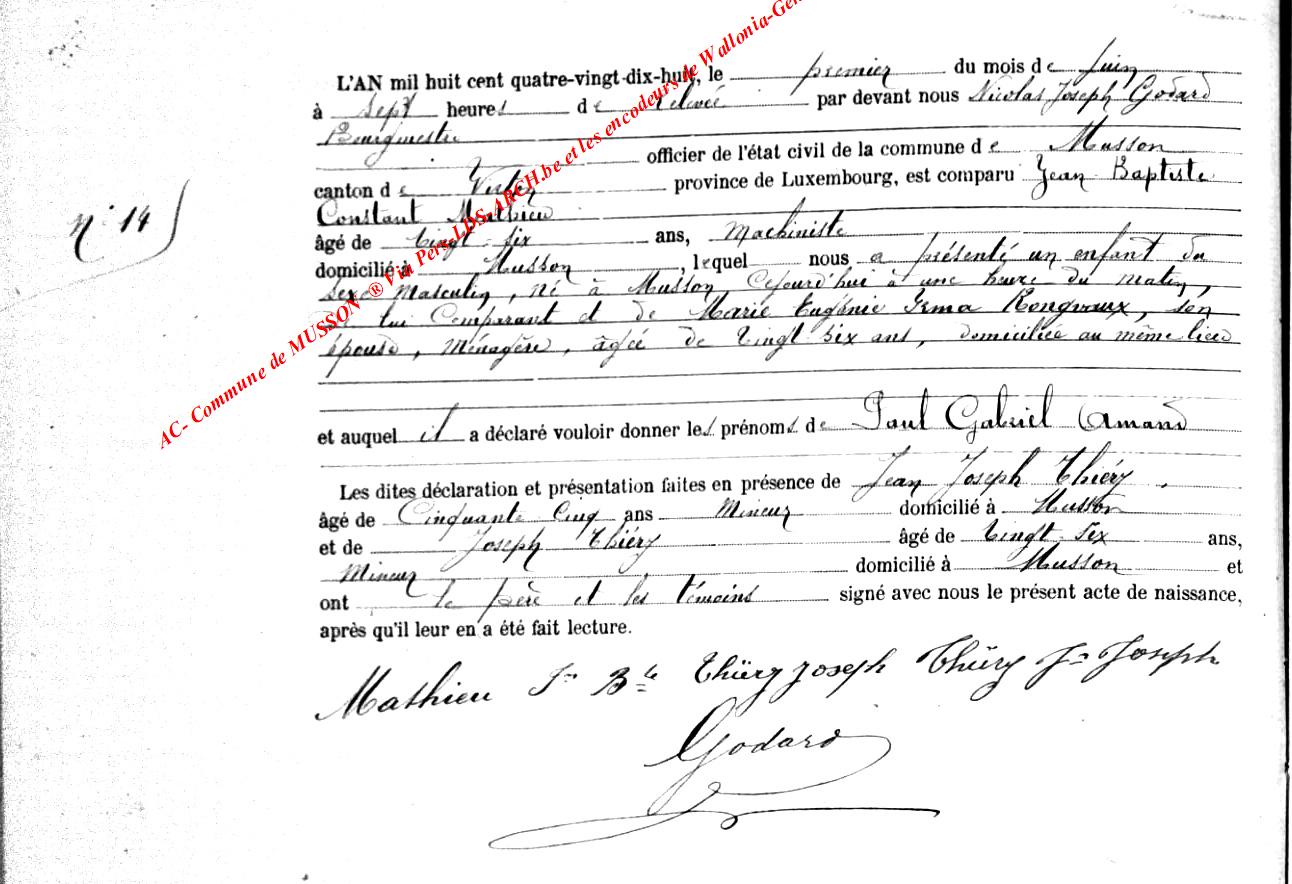 L'AN mil huit cent quatre-vingt-dix-huit, le premier du mois de Juin
à Sept heures de relevée par devant nous Nicolas Joseph Godard
Bourgmestre
officier de l'état civil de la commune de Musson
canton de Virton province de Luxembourg, est comparu Jean Baptiste
Constant Mathieu
n° 14
âgé de Vingt-six ans, Machiniste
domicilié à Musson, lequel nous a présenté un enfant du
sexe Masculin, Né à Musson, Cejourd'hui à une heure du matin,
de lui Comparant et de Marie Eugénie Irma Rongvaux, son
épouse, Ménagère, âgée de Vingt six ans, domiciliée au même lieu
et auquel il a déclaré vouloir donner les prénoms de Paul Gabriel Amand
Les dites déclaration et présentation faites en présence de Jean Joseph Thiéry,
âgé de Cinquante Cinq ans Mineur domicilié à Musson
et de Joseph Thiéry âgé de Vingt-six ans,
Mineur domicilié à Musson et
ont le père et les témoins signé avec nous le présent acte de naissance,
après qu'il leur en a été fait lecture.
Mathieu Jn Bte Thiéry Joseph Thiéry Jn Joseph
Godard
AC- Commune de MUSSON ® Via Pers.LDS-ARCH.be et les encodeurs de Wallonia-Gen